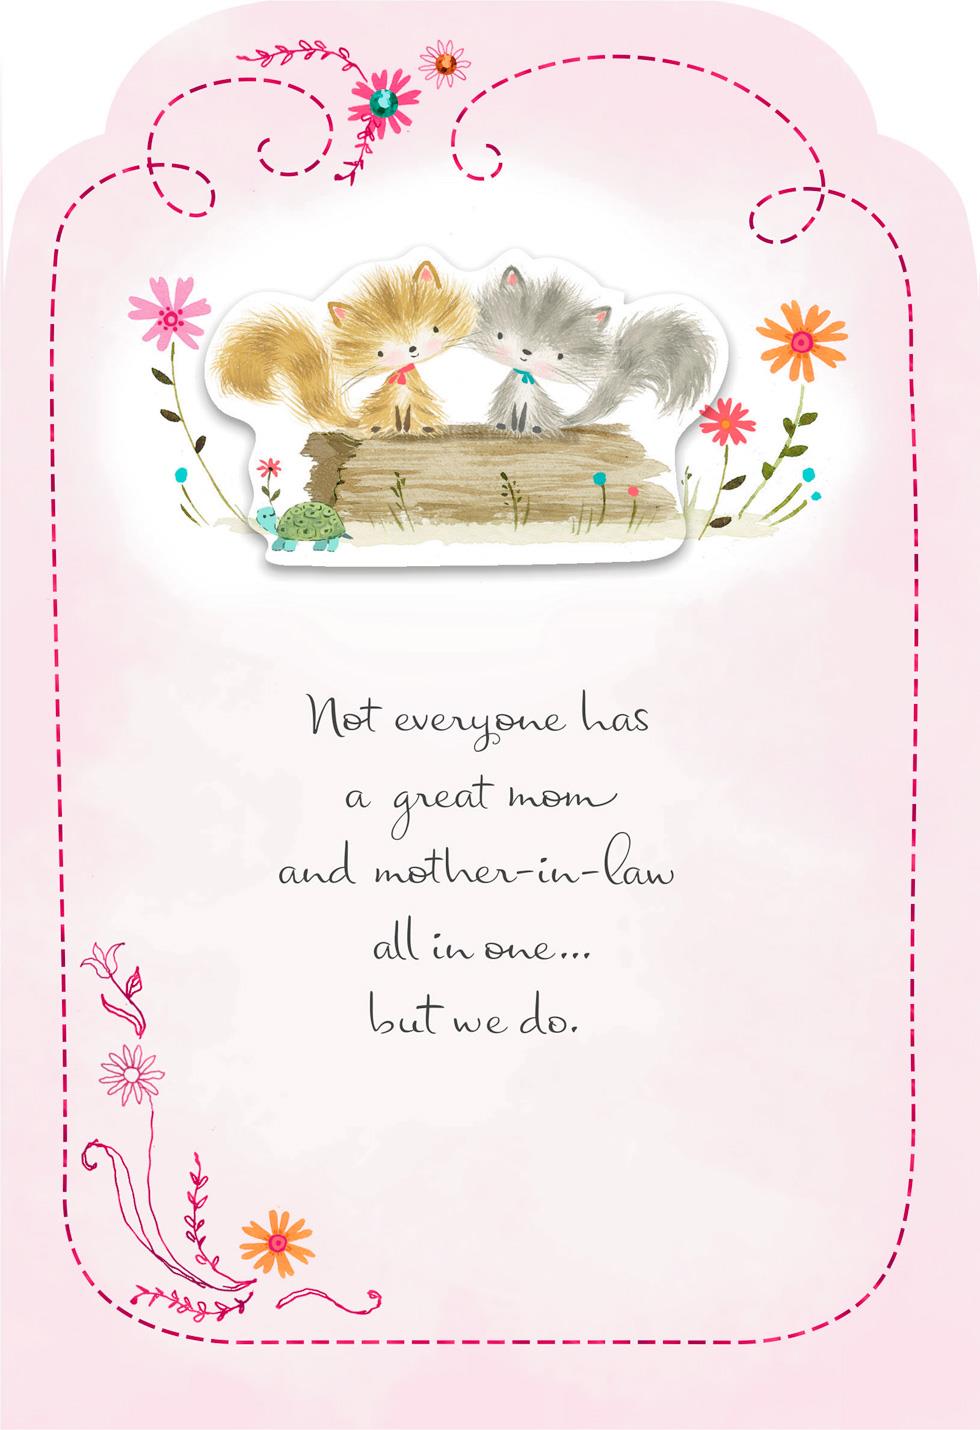 Not everyone has
a great mom
and mother-in-law
all in one...
but we do.